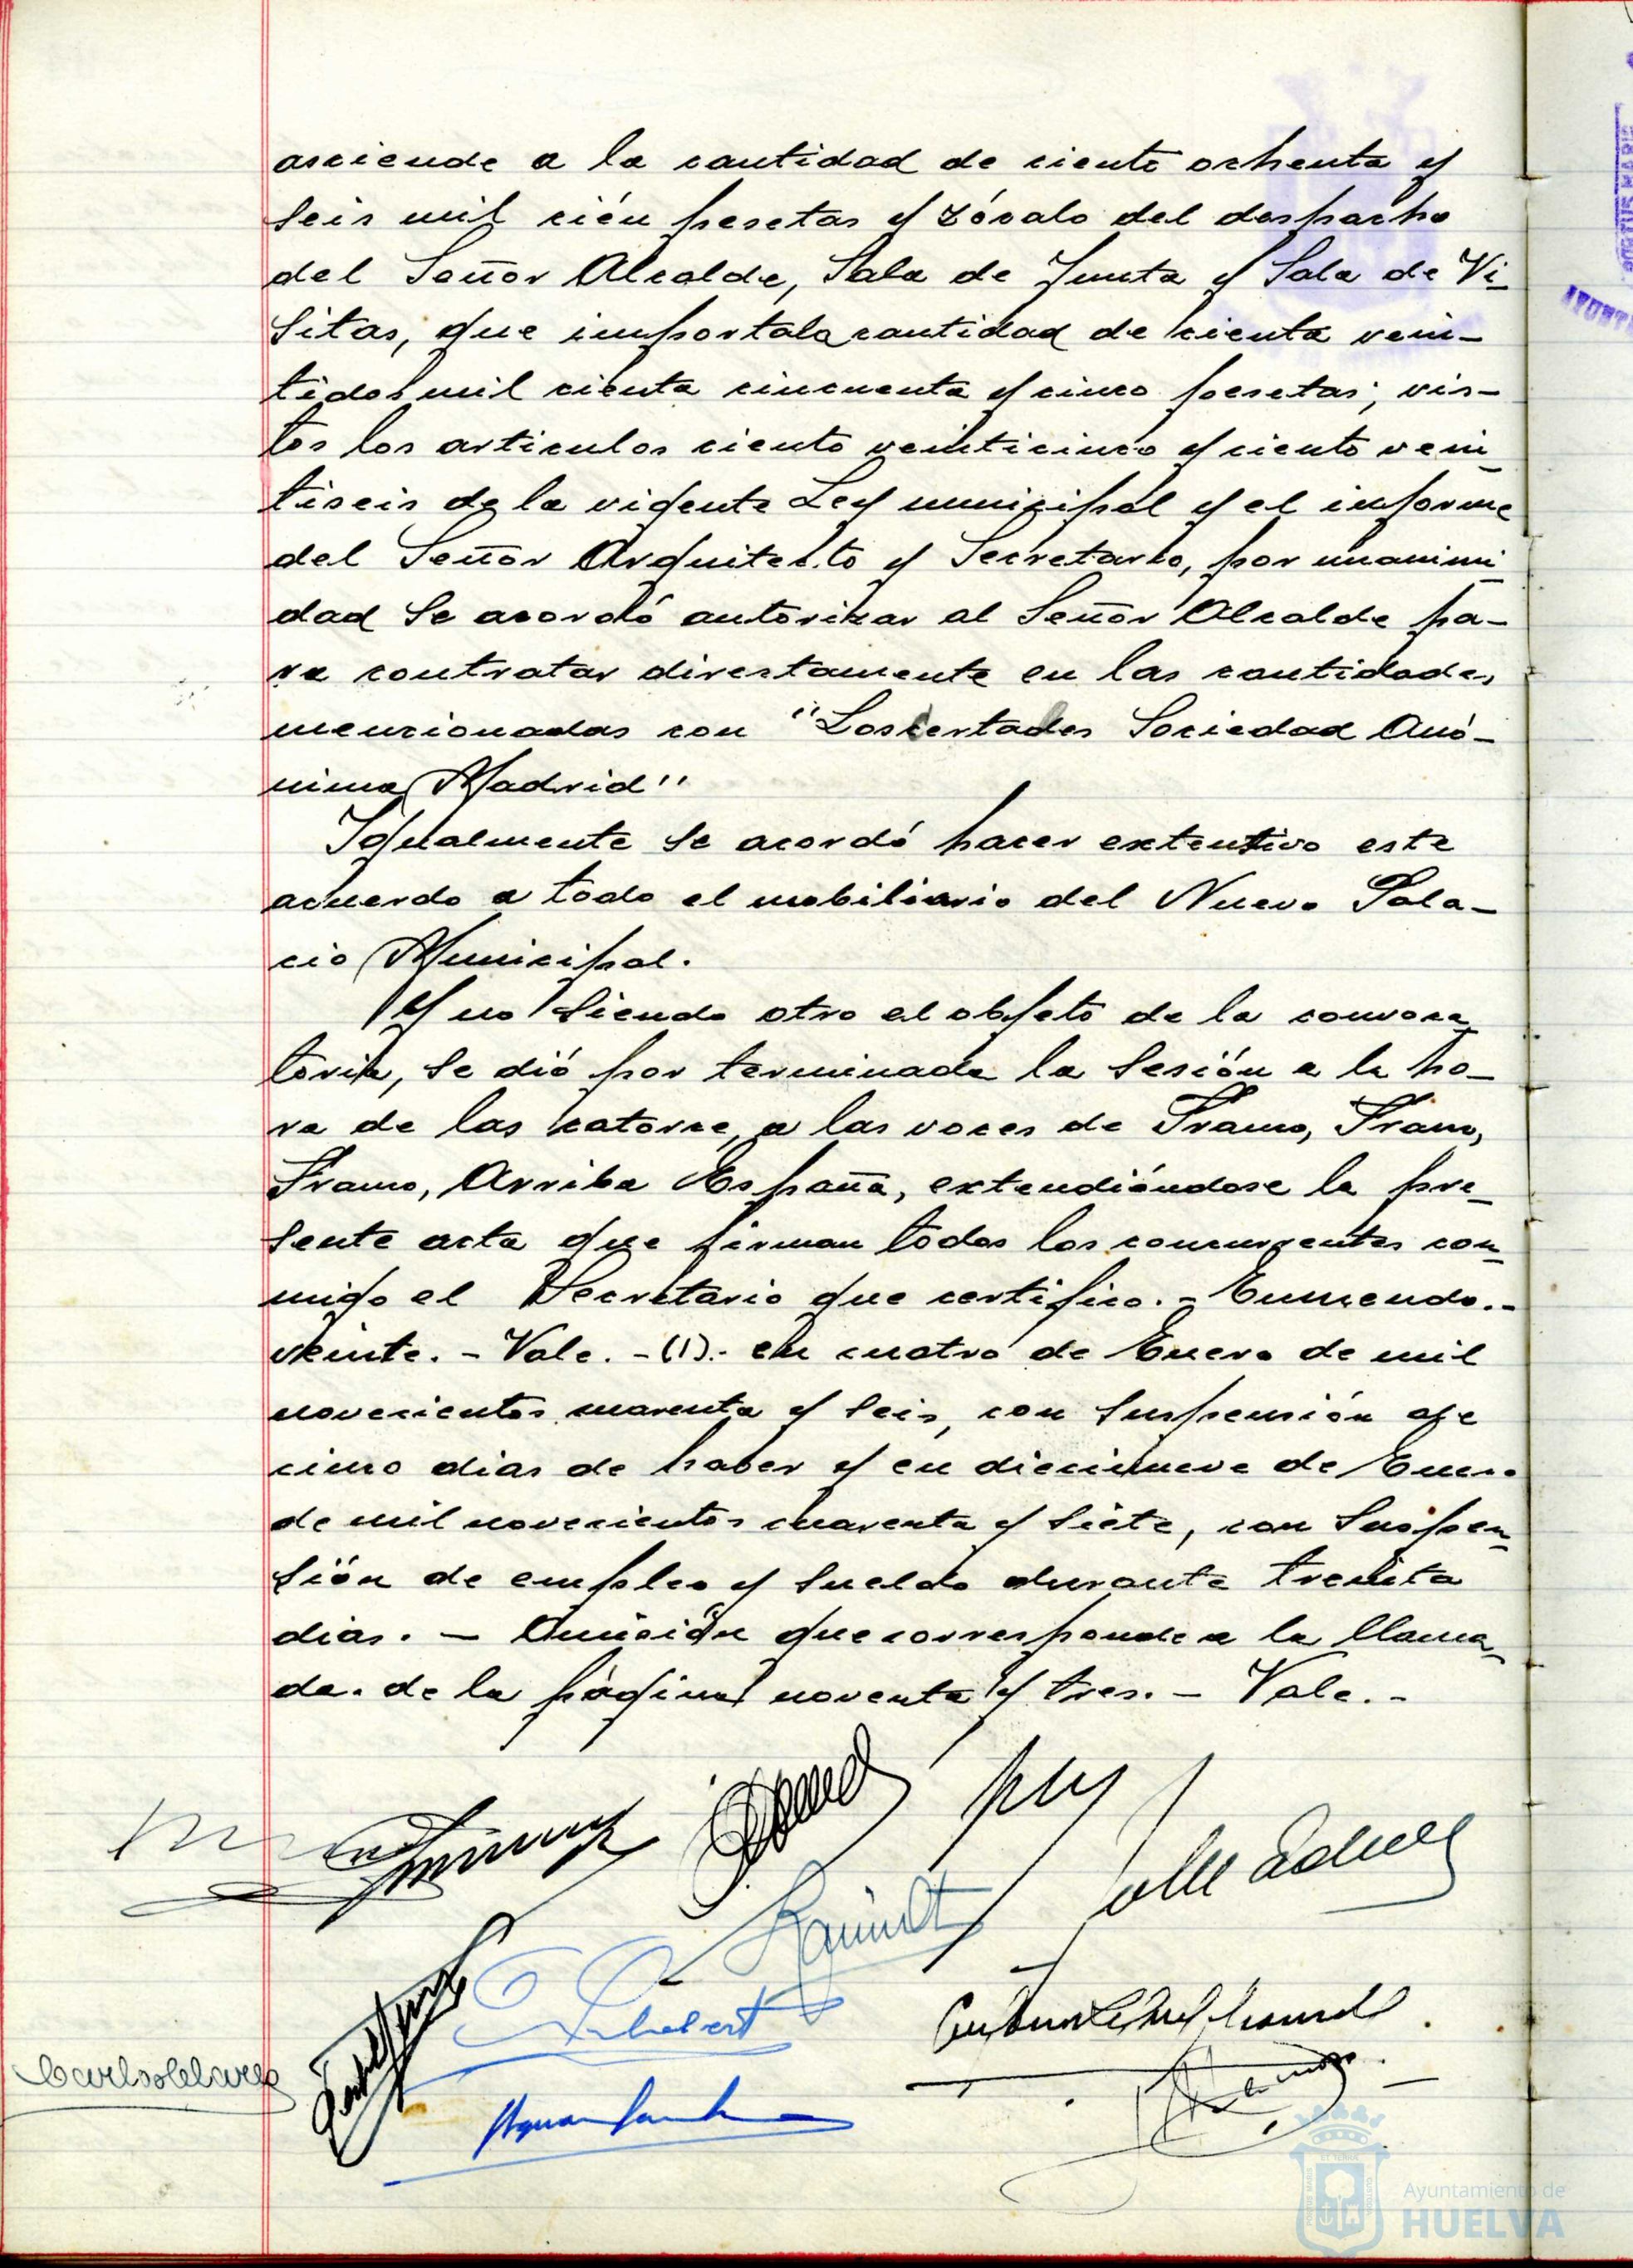 asciende a la cantidad de ciento ochenta y
seis mil cién pesetas y zócalo del despacho
del Señor Alcalde, Sala de Junta y Sala de Vi-
sitas, que importa la cantidad de ciento vein-
tidos mil ciento cincuenta y cinco pesetas; vis-
tos los articulos ciento veinticinco y ciento vein-
tiseis de la vigente Ley municipal y el informe
del Señor Arquitecto y Secretario, por unanimi-
dad se acordó autorizar al Señor Alcalde pa-
ra contratar directamente en las cantidades
mencionadas con "Loscertales Sociedad Anó-
nima Madrid"
Igualmente se acordó hacer extentivo este
acuerdo a todo el mobiliario del Nuevo Pala-
cio Municipal.
Y no siendo otro el objeto de la convoca-
toria, se dió por terminada la sesión a la ho-
ra de las catorce, a las voces de Franco, Franco,
Franco, Arriba España, extendiéndose la pre-
sente acta que firman todos los concurrentes con-
migo el Secretario que certifico. - Enmendo. -
veinte. - Vale. - (1). - en cuatro de Enero de mil
novecientos cuarenta y seis, con suspensión de
cinco dias de haber y en diecinueve de Enero
de mil novecientos cuarenta y siete, con suspen-
sión de empleo y sueldo durante treinta
dias. - Omisión que corresponde a la llama-
da. de la página noventa y tres. - Vale. -
Ayuntamiento de
HUELVA